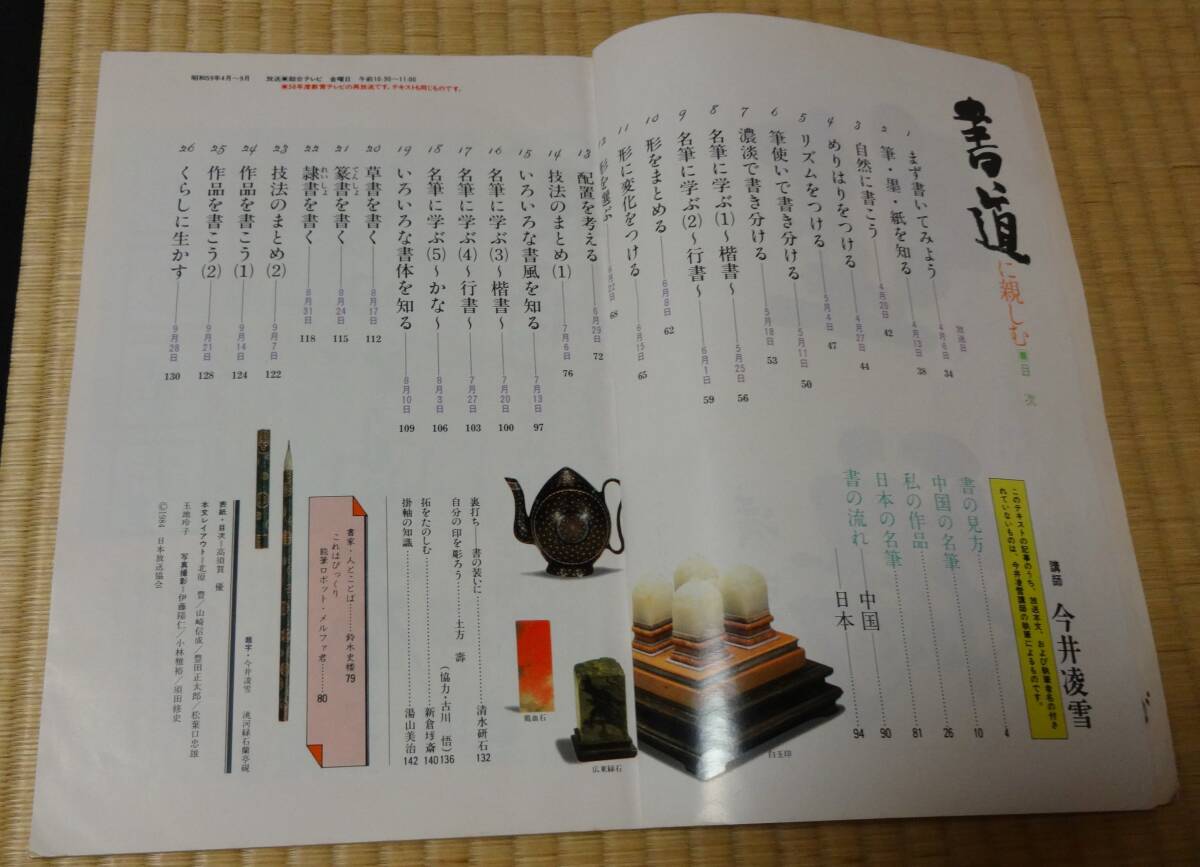 書道に親しむ
■目次
放送日
1 まず書いてみよう 4月6日 34
2 筆・墨・紙を知る 4月13日 38
3 自然に書こう 4月20日 42
4 めりはりをつける 4月27日 44
5 リズムをつける 5月4日 47
6 筆使いで書き分ける 5月11日 50
7 濃淡で書き分ける 5月18日 53
8 名筆に学ぶ(1)〜楷書〜 5月25日 56
9 名筆に学ぶ(2)〜行書〜 6月1日 59
10 形をまとめる 6月8日 62
11 形に変化をつける 6月15日 65
12 形を選ぶ 6月22日 68
13 配置を考える 6月29日 72
14 技法のまとめ(1) 7月6日 76
15 いろいろな書風を知る 7月13日 97
16 名筆に学ぶ(3)〜楷書〜 7月20日 100
17 名筆に学ぶ(4)〜行書〜 7月27日 103
18 名筆に学ぶ(5)〜かな〜 8月3日 106
19 いろいろな書体を知る 8月10日 109
20 草書を書く 8月17日 112
21 篆書を書く 8月24日 115
てんしょ
22 隷書を書く 8月31日 118
れいしょ
23 技法のまとめ(2) 9月7日 122
24 作品を書こう(1) 9月14日 124
25 作品を書こう(2) 9月21日 128
26 くらしに生かす 9月28日 130
昭和59年4月〜9月 放送■総合テレビ 金曜日 午前10:30〜11:00
■58年度教育テレビの再放送です。テキストも同じものです。
講師 今井凌雪
このテキストの記事のうち、放送本文、および執筆者名の付されていないものは、今井凌雪講師の執筆によるものです。
書の見方 4
中国の名筆 10
私の作品 26
日本の名筆 81
書の流れ 中国 90
日本 94
白玉印
鶏血石
広東緑石
裏打ち――書の装いに 清水研石 132
自分の印を彫ろう 土方 壽(協力・古川 悟) 136
拓をたのしむ 新倉 140
掛軸の知識 湯山美治 142
書家・人とことば 鈴木史楼 79
これはびっくり
能筆ロボット・メルファ君 80
題字・今井凌雪 洮河緑石蘭亭硯
表紙・目次＝高須賀 優
本文レイアウト＝北原 豊／山崎信成／豊田正太郎／松葉口忠雄
玉池玲子 写真撮影＝伊藤陽仁／小林雅裕／須田修史
©1984 日本放送協会